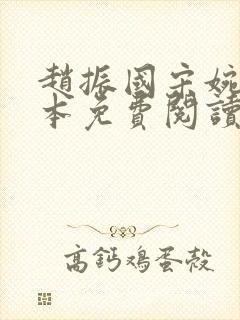 趙振國宋婉
本免費閱讀
高鈣鸡蛋殼